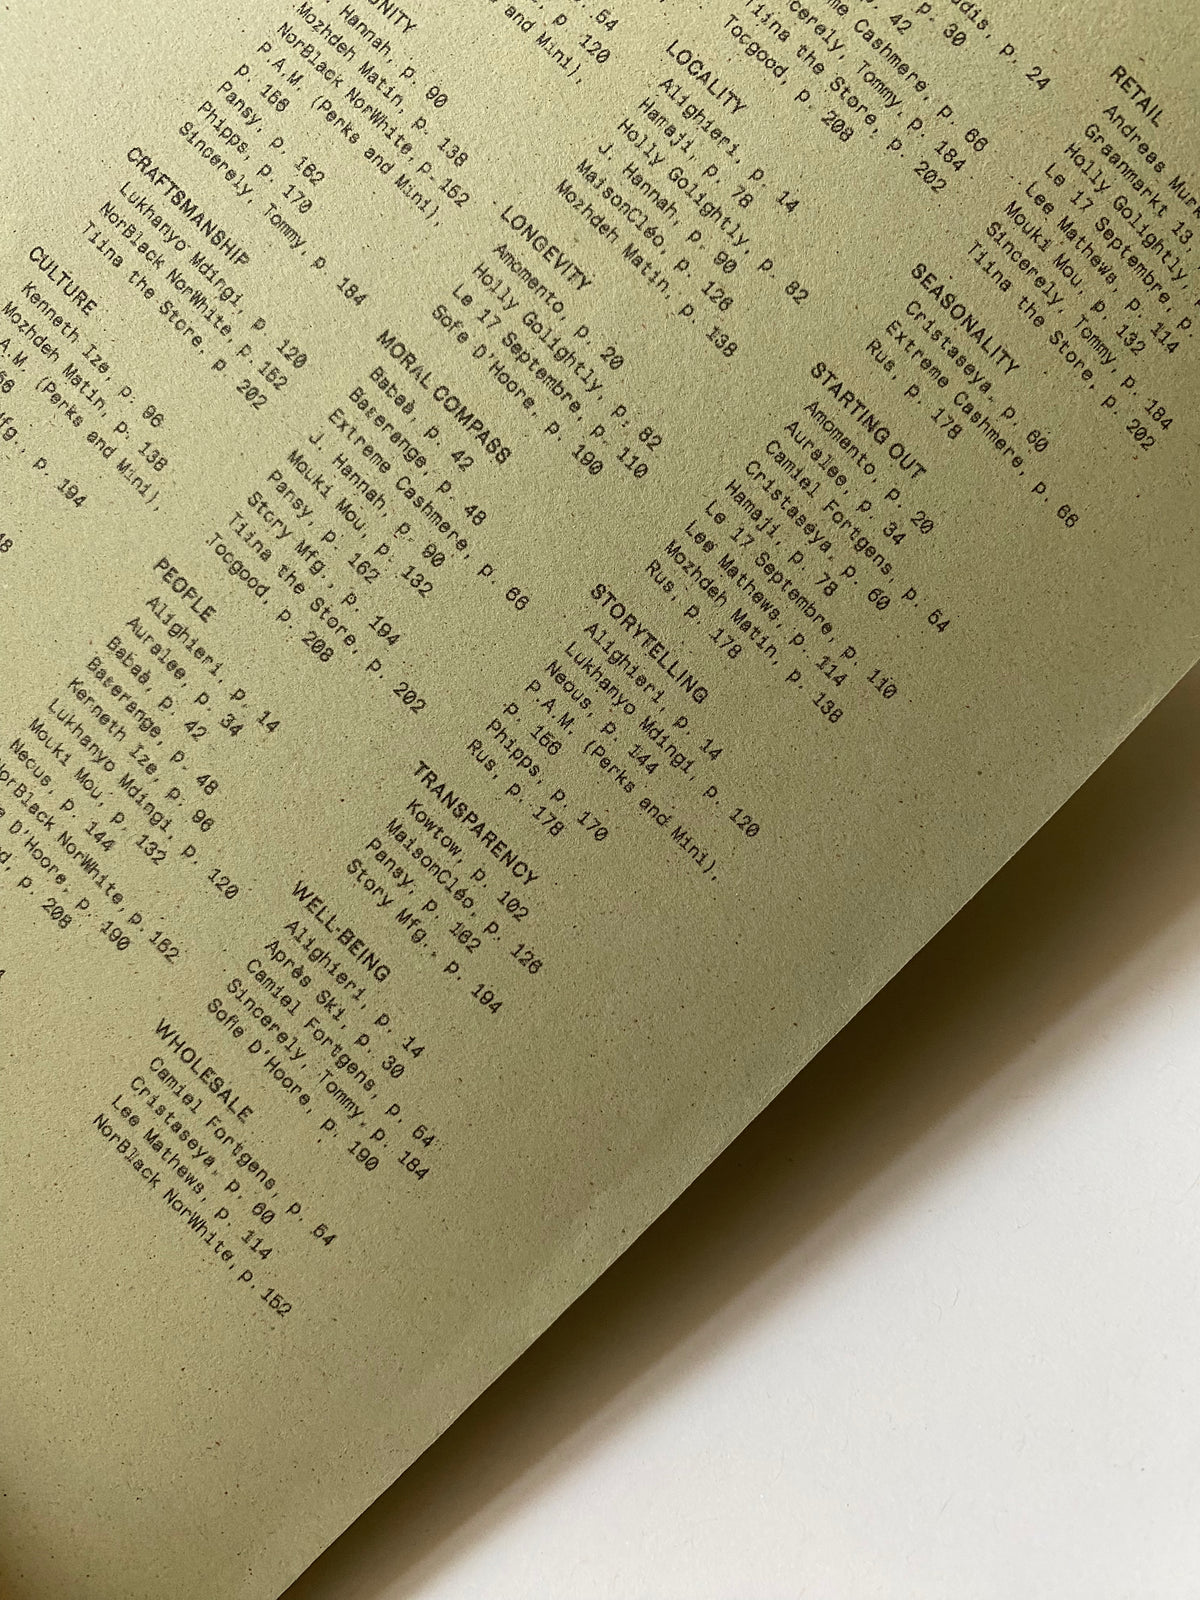 p. 54
p. 120
and Mini),
Hannah, p. 90
Mozhdeh Matin, p. 138
NorBlack NorWhite, p. 152
P.A.M. (Perks and Mini),
p. 156
Pansy, p. 162
Phipps, p. 170
Sincerely, Tommy, p. 184
CRAFTSMANSHIP
Lukhanyo Mdingi, p. 120
NorBlack NorWhite, p. 152
Tiina the Store, p. 202
CULTURE
Kenneth Ize, p. 96
Mozhdeh Matin, p. 138
(Perks and Mini),
p. 194
p. 24
p. 30
p. 42
Cashmere, p. 66
Tommy, p. 184
Tiina the Store, p. 202
Toogood, p. 208
LOCALITY
Alighieri, p. 14
Hamaji, p. 78
Holly Golightly, p. 82
J. Hannah, p. 90
MaisonCléo, p. 126
Mozhdeh Matin, p. 138
LONGEVITY
Amomento, p. 20
Holly Golightly, p. 82
Le 17 Septembre, p. 110
Sofie D'Hoore, p. 190
MORAL COMPASS
Babaà, p. 42
Baserange, p. 48
Extreme Cashmere, p. 66
J. Hannah, p. 90
Mouki Mou, p. 132
Pansy, p. 162
Story Mfg., p. 194
Tiina the Store, p. 202
Toogood, p. 208
PEOPLE
Alighieri, p. 14
Auralee, p. 34
Babaà, p. 42
Baserange, p. 48
Kenneth Ize, p. 96
Lukhanyo Mdingi, p. 120
Mouki Mou, p. 132
Neous, p. 144
NorBlack NorWhite, p. 152
D'Hoore, p. 190
p. 208
RETAIL
Andreas
Graanmarkt 13,
Holly Golightly,
Le 17 Septembre, p.
Lee Mathews, p. 114
Mouki Mou, p. 132
Sincerely, Tommy, p. 184
Tiina the Store, p. 202
SEASONALITY
Cristaseya, p. 60
Extreme Cashmere, p. 66
Rus, p. 178
STARTING OUT
Amomento, p. 20
Auralee, p. 34
Camiel Fortgens, p. 54
Cristaseya, p. 60
Hamaji, p. 78
Le 17 Septembre, p. 110
Lee Mathews, p. 114
Mozhdeh Matin, p. 138
Rus, p. 178
STORYTELLING
Alighieri, p. 14
Lukhanyo Mdingi, p. 120
Neous, p. 144
P.A.M. (Perks and Mini),
p. 156
Phipps, p. 170
Rus, p. 178
TRANSPARENCY
Kowtow, p. 102
MaisonCléo, p. 126
Pansy, p. 162
Story Mfg., p. 194
WELL-BEING
Alighieri, p. 14
Après Ski, p. 30
Camiel Fortgens, p. 54
Sincerely, Tommy, p. 184
Sofie D'Hoore, p. 190
WHOLESALE
Camiel Fortgens, p. 54
Cristaseya, p. 60
Lee Mathews, p. 114
NorBlack NorWhite, p. 152